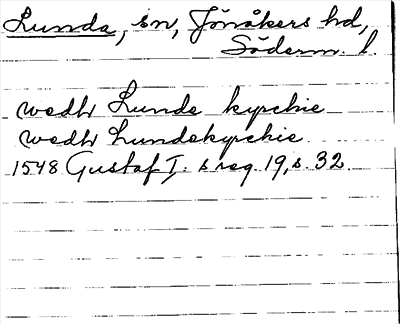 Lunda, sn, Jönåkers hd,
Söderm. l.
wedh Lunde kyrchie
wedh Lundekyrchie
1548 Gustaf I:s reg. 19, s. 32.